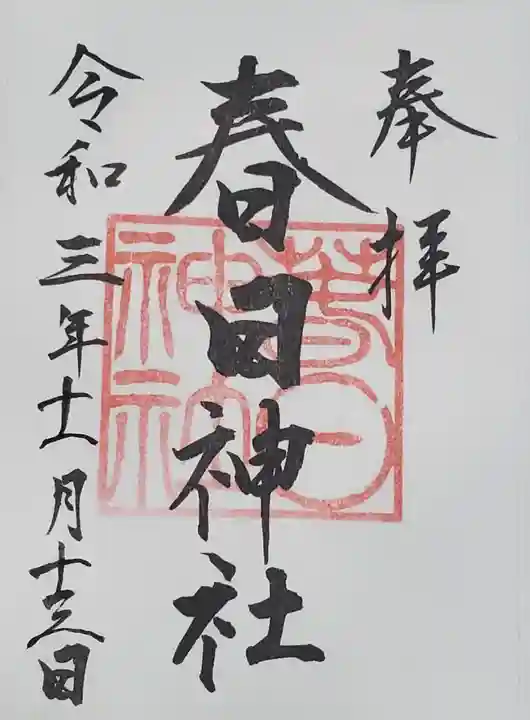 奉拝
春日神社
令和三年十一月十三日
春日
神社